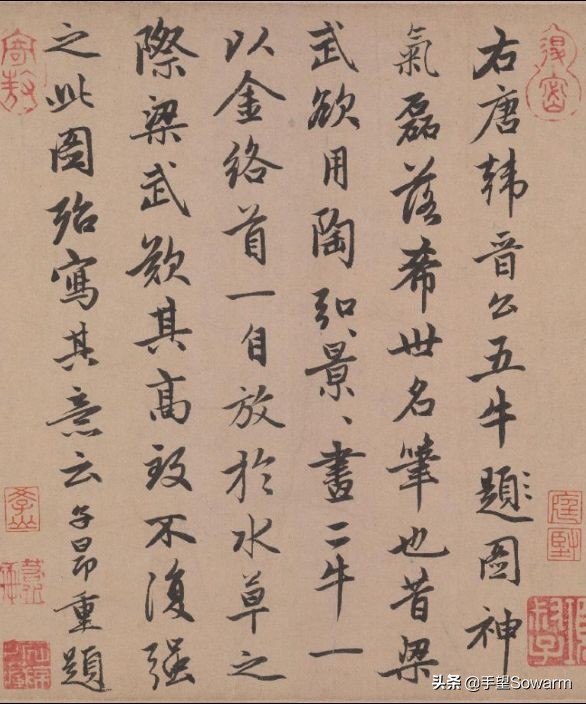 右唐韩晉公五牛題圖神
氣磊落希世名筆也昔梁
武欲用陶弘景、畫二牛一
以金絡首一自放於水草之
際梁武歎其高致不復强
之此圖殆寫其意云子昂重題
头条 @手望Sowarm